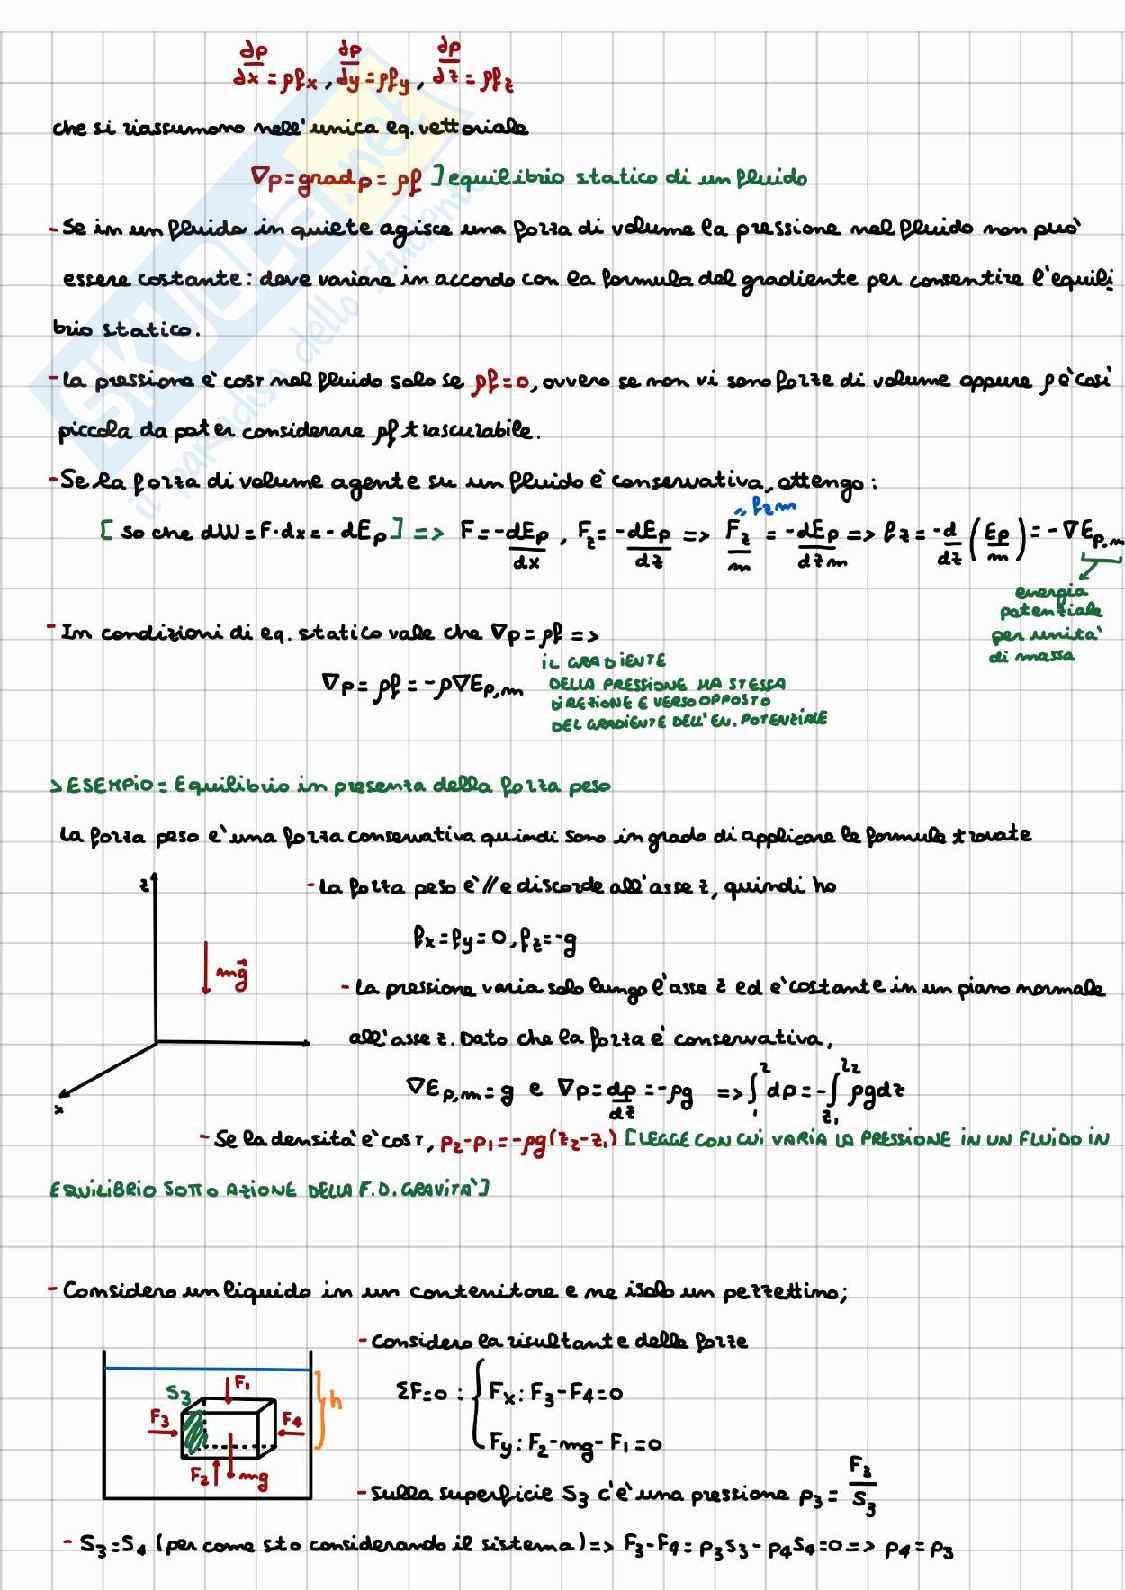 ∂p/∂x = ρfx , ∂p/∂y = ρfy , ∂p/∂z = ρfz
che si riassumono nell'unica eq. vettoriale
∇p = grad p = ρf ] equilibrio statico di un fluido
- Se in un fluido in quiete agisce una forza di volume la pressione nel fluido non può
essere costante: deve variare in accordo con la formula del gradiente per consentire l'equili
brio statico.
- La pressione è cost nel fluido solo se ρf=0, ovvero se non vi sono forze di volume oppure ρ è così
piccola da poter considerare ρf trascurabile.
- Se la forza di volume agente su un fluido è conservativa, ottengo:
" fzm
[ so che dW = F·dx = -dEp ] => F = -dEp/dx , Fz = -dEp/dz => Fz/m = -dEp/dzm => fz = -d/dz (Ep/m) = -∇Ep,m
energia
potenziale
per unità
di massa
- In condizioni di eq. statico vale che ∇p = ρf =>
∇p = ρf = -ρ∇Ep,m
IL GRADIENTE
DELLA PRESSIONE HA STESSA
DIREZIONE E VERSO OPPOSTO
DEL GRADIENTE DELL'EN. POTENZIALE
> ESEMPIO = Equilibrio in presenza della forza peso
La forza peso è una forza conservativa quindi sono in grado di applicare le formule trovate
z
- La forza peso è // e discorde all'asse z, quindi ho
fx = fy = 0, fz = -g
mg
- La pressione varia solo lungo l'asse z ed è costante in un piano normale
all'asse z. Dato che la forza è conservativa,
x
∇Ep,m = g e ∇p = dp/dz = -ρg => ∫₁² dp = -∫z₁z₂ ρgdz
- Se la densità è cost, p2-p1 = -ρg(z2-z1) [LEGGE CON CUI VARIA LA PRESSIONE IN UN FLUIDO IN
EQUILIBRIO SOTTO AZIONE DELLA F.D. GRAVITA']
- Considero un liquido in un contenitore e ne isolo un pezzettino;
- Considero la risultante delle forze
S3 F1 h
F3 F4
F2 mg
ΣF=0 : { Fx: F3-F4=0
Fy: F2-mg-F1=0
- sulla superficie S3 c'è una pressione p3 = F3/S3
- S3=S4 (per come sto considerando il sistema) => F3-F4 = p3S3-p4S4=0 => p4=p3
SKUOLA.net
il paradiso dello studente